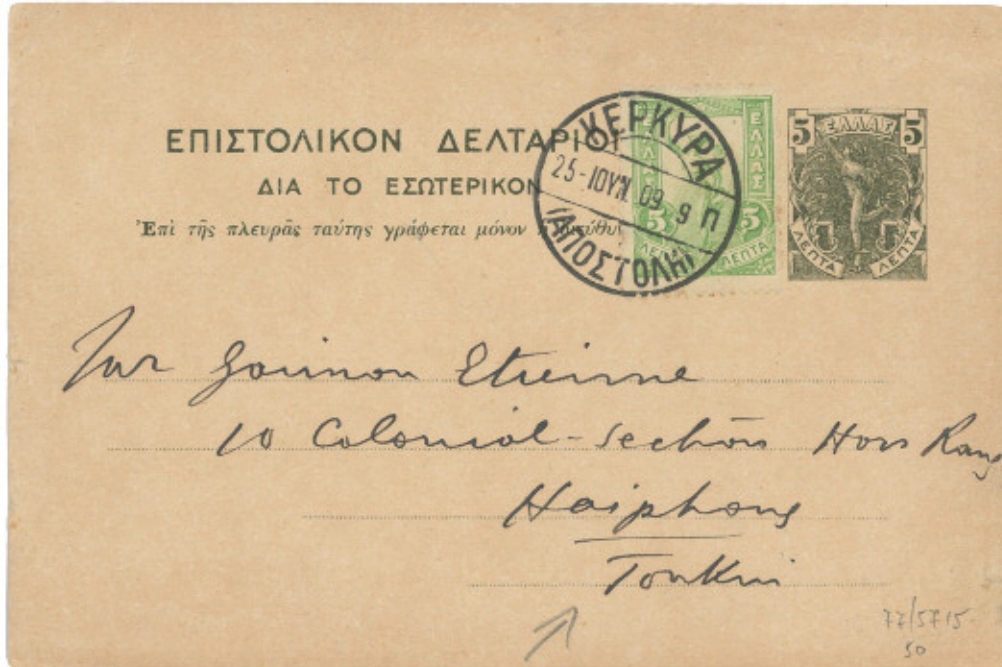 ΕΠΙΣΤΟΛΙΚΟΝ ΔΕΛΤΑΡΙΟ
ΔΙΑ ΤΟ ΕΣΩΤΕΡΙΚΟΝ
Ἐπὶ τῆς πλευρᾶς ταύτης γράφεται μόνον ἡ
ΚΕΡΚΥΡΑ
25-ΙΟΥΝ. 09 9 Π
(ΑΠΟΣΤΟΛΗ)
ΕΛΛΑΣ
ΕΛΛΑΣ
5 5
ΛΕΠΤΑ ΛΕΠΤΑ
5 ΕΛΛΑΣ 5
ΛΕΠΤΑ ΛΕΠΤΑ
Etienne
10 Colonial-Section Hors Rang
Haiphong
Tonkin
77/5715-
50